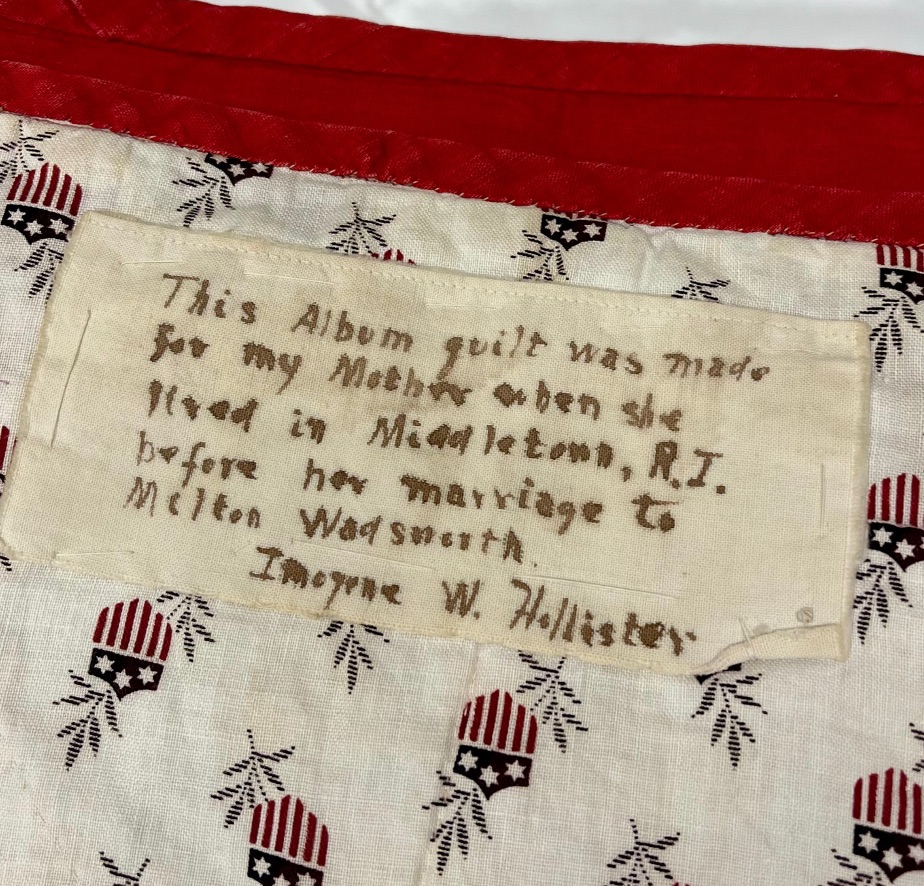 This Album quilt was made
for my Mother when she
lived in Middletown, R.I.
before her marriage to
Milton Wadsworth.
Imogene W. Hollister